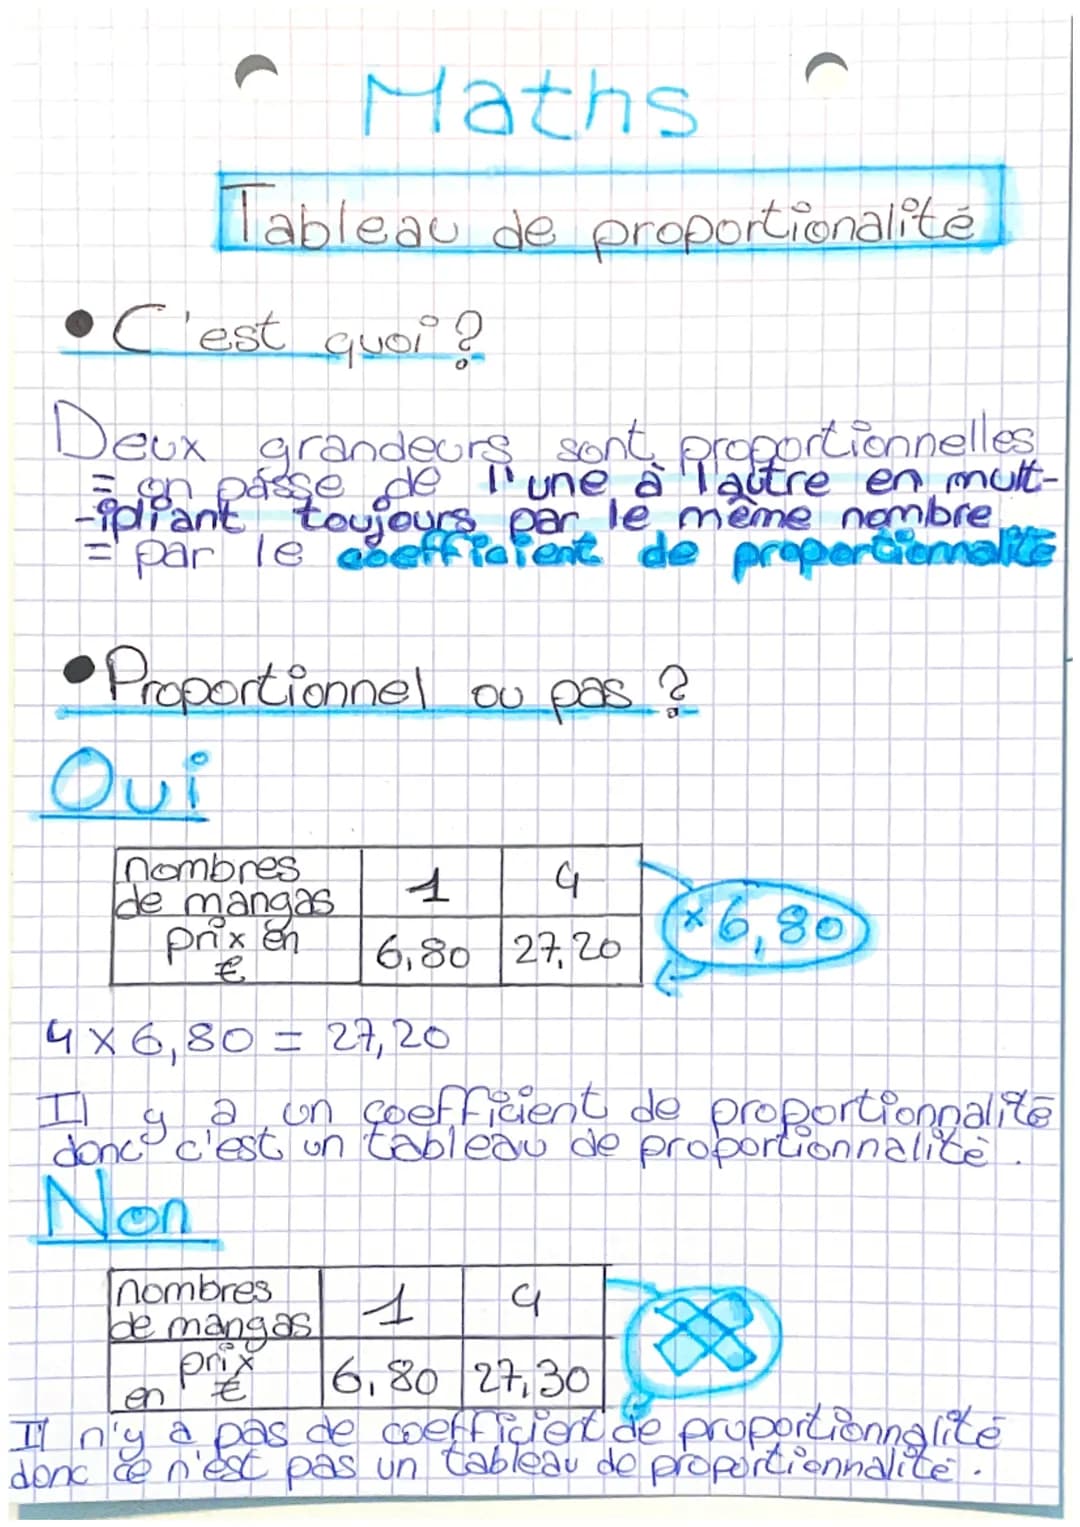 Maths
Tableau de proportionalité
• C'est quoi ?
Deux grandeurs sont proportionnelles
= on passe de l'une à l'autre en mult-
-ipliant toujours par le même nombre
= par le coefficient de proportionnalité
• Proportionnel ou pas ?
Oui
nombres
de mangas 1 4
prix en
€ 6,80 27,20
×6,80
4 × 6,80 = 27,20
Il y a un coefficient de proportionnalité
donc c'est un tableau de proportionnalité.
Non
nombres
de mangas 1 4
prix
en € 6,80 27,30
Il n'y a pas de coefficient de proportionnalité
donc ce n'est pas un tableau de proportionnalité.